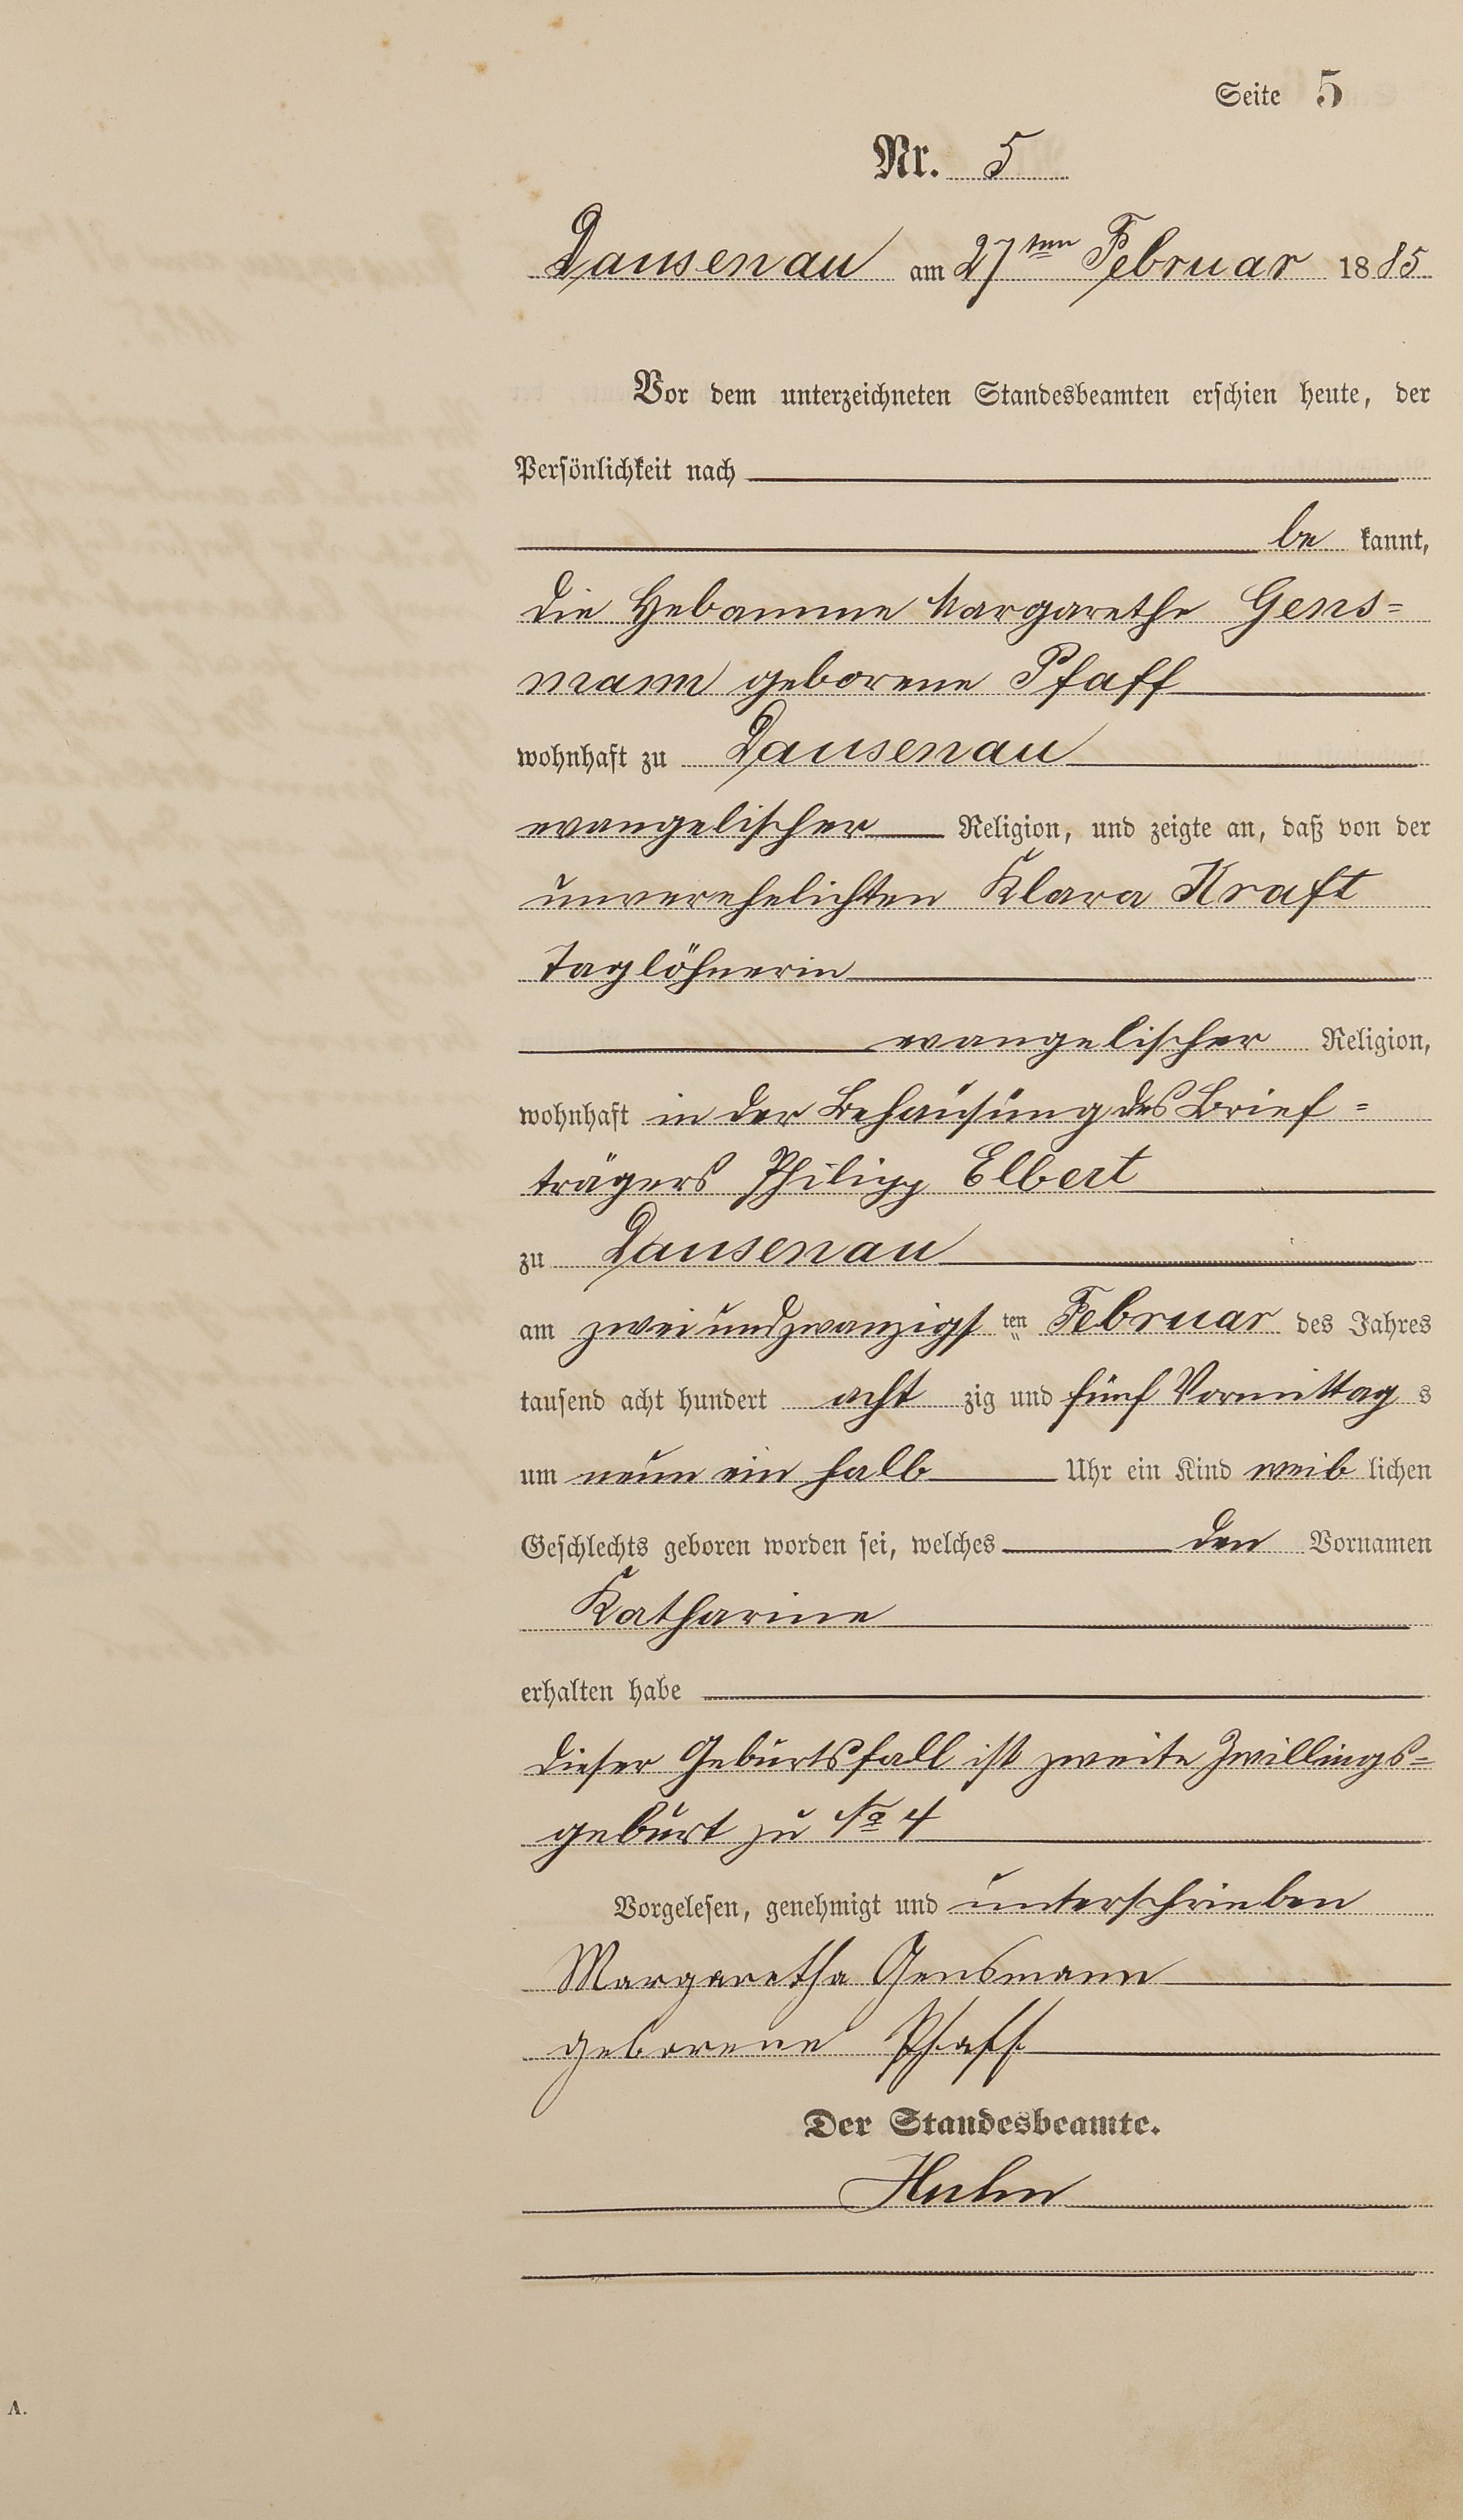 Seite 5
Nr. 5
Dausenau am 27ten Februar 1885
Vor dem unterzeichneten Standesbeamten erschien heute, der
Persönlichkeit nach
be kannt,
die Hebamme Margarethe Gens=
mann geborene Pfaff
wohnhaft zu Dausenau
evangelischer Religion, und zeigte an, daß von der
unverehelichten Klara Kraft
Taglöhnerin
evangelischer Religion,
wohnhaft in der Behausung des Brief=
trägers Philipp Elbert
zu Dausenau
am zweiundzwanzigsten Februar des Jahres
tausend acht hundert acht zig und fünf Vormittag s
um neun ein halb Uhr ein Kind weib lichen
Geschlechts geboren worden sei, welches den Vornamen
Katharine
erhalten habe
dieser Geburtsfall ist zweite Zwillings=
geburt zu No 4
Vorgelesen, genehmigt und unterschrieben
Margaretha Gensmann
geborene Pfaff
Der Standesbeamte.
Huhn
A.